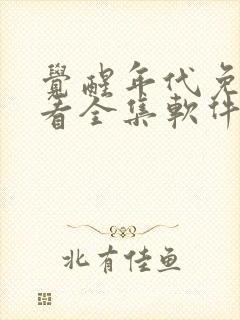 覺醒年代免
看全集軟件
北有佳鱼